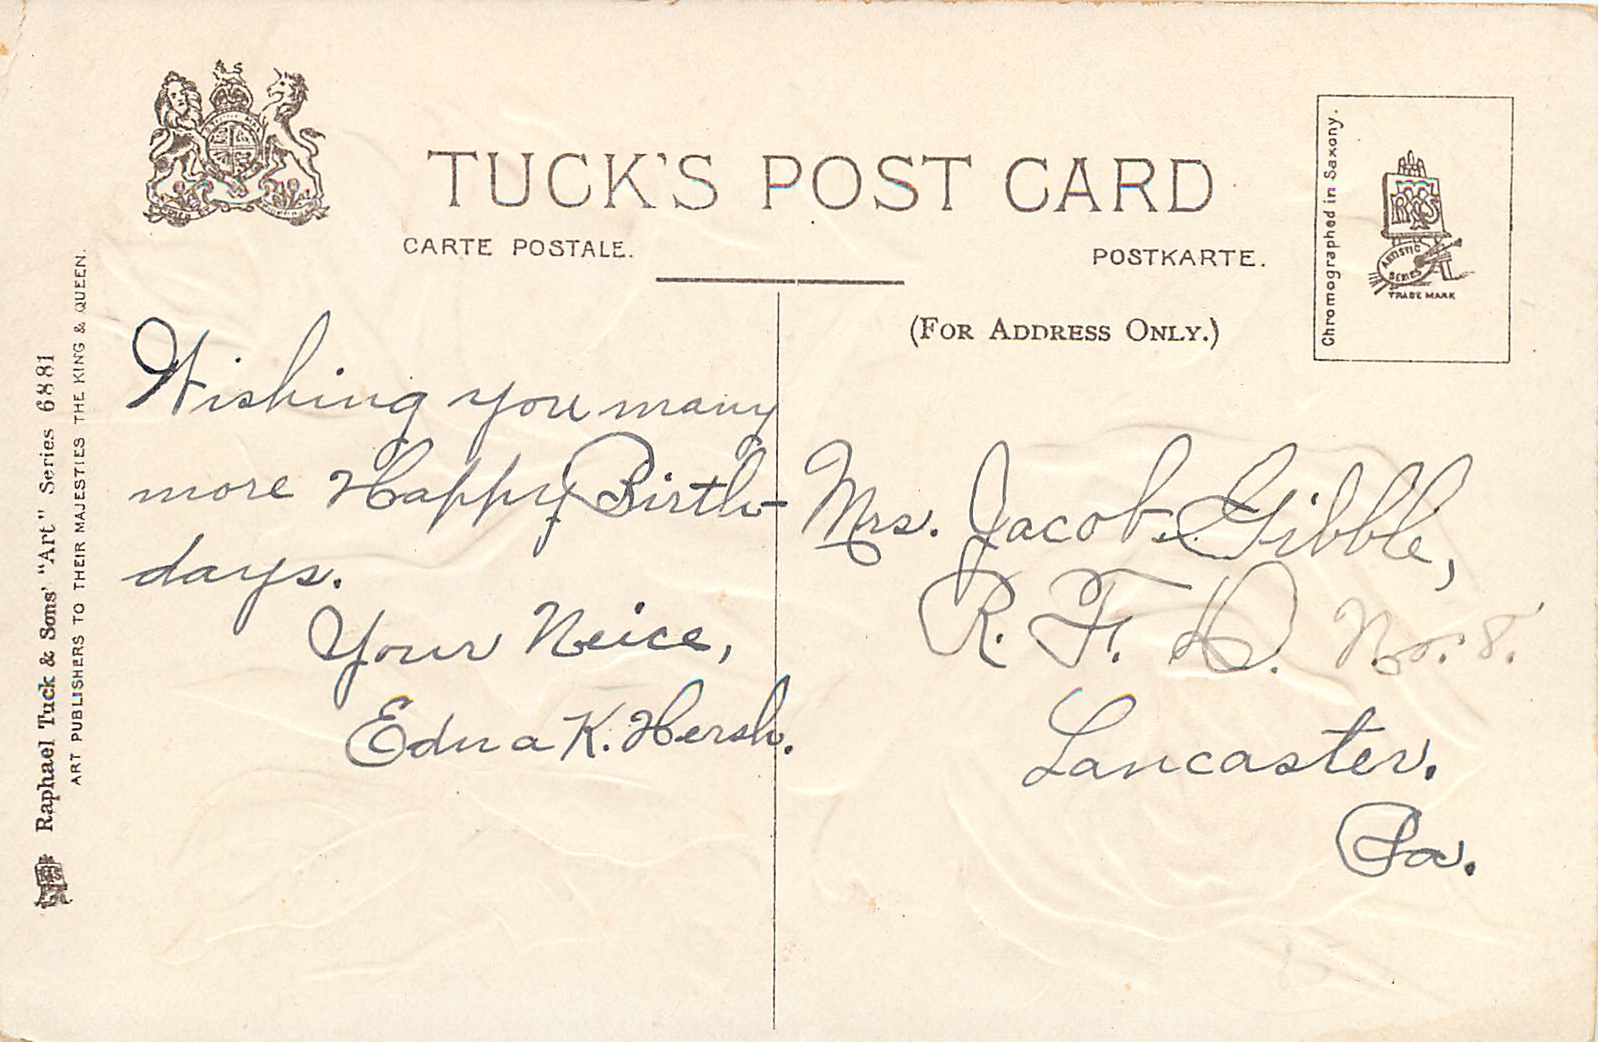 TUCK'S POST CARD
CARTE POSTALE.
POSTKARTE.
(FOR ADDRESS ONLY.)
Chromographed in Saxony.
RTS
ARTISTIC
SERIES
TRADE MARK
Raphael Tuck & Sons' "Art" Series 6881
ART PUBLISHERS TO THEIR MAJESTIES THE KING & QUEEN.
Wishing you many
more Happy Birth-
days.
Your Neice,
Edna K. Hersh.
Mrs. Jacob Gibble,
R. F. D. No. 8.
Lancaster.
Pa.